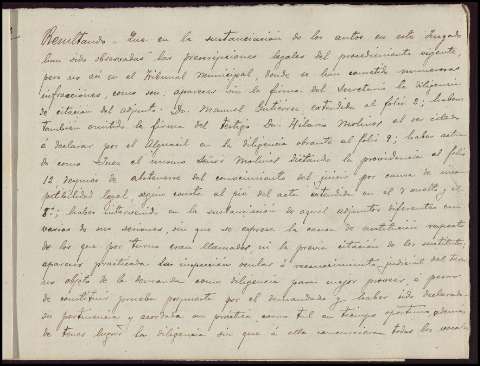 Resultando - Que en la sustanciación de los autos en este Juzgado
han sido observadas las prescripciones legales del procedimiento vigente,
pero no así en el Tribunal Municipal, donde se han cometido numerosas
infracciones, como son: aparecer sin la firma del Secretario la diligencia
de citación del adjunto Dn. Manuel Gutiérrez extendida al folio 2; haber
tambien omitido la firma del testigo Dn. Hilario Molinos al ser citado
á declarar por el Alguacil en la diligencia obrante al folio 9; haber actua
do como Juez el mismo Señor Molinos dictando la providencia al folio
12, despues de abstenerse del conocimiento del juicio por causa de incom
patibilidad legal, según consta al pie del acta extendida en el 7 vuelto y el
8º; haber intervenido en la sustanciación de aquel adjuntos diferentes en
varias de sus sesiones, sin que se exprese la causa de sustitución respecto
de los que por turno eran llamados, ni la previa citación de los sustitutos;
aparecer practicada la inspección ocular ó reconocimiento judicial del terre
no objeto de la demanda como diligencia para mejor proveer, á pesar
de constituir prueba propuesta por el demandado y haber sido declarada
su pertinencia y acordada su práctica como tal en tiempo oportuno, además
de tener lugar la diligencia sin que á ella concurrieran todos los vocales